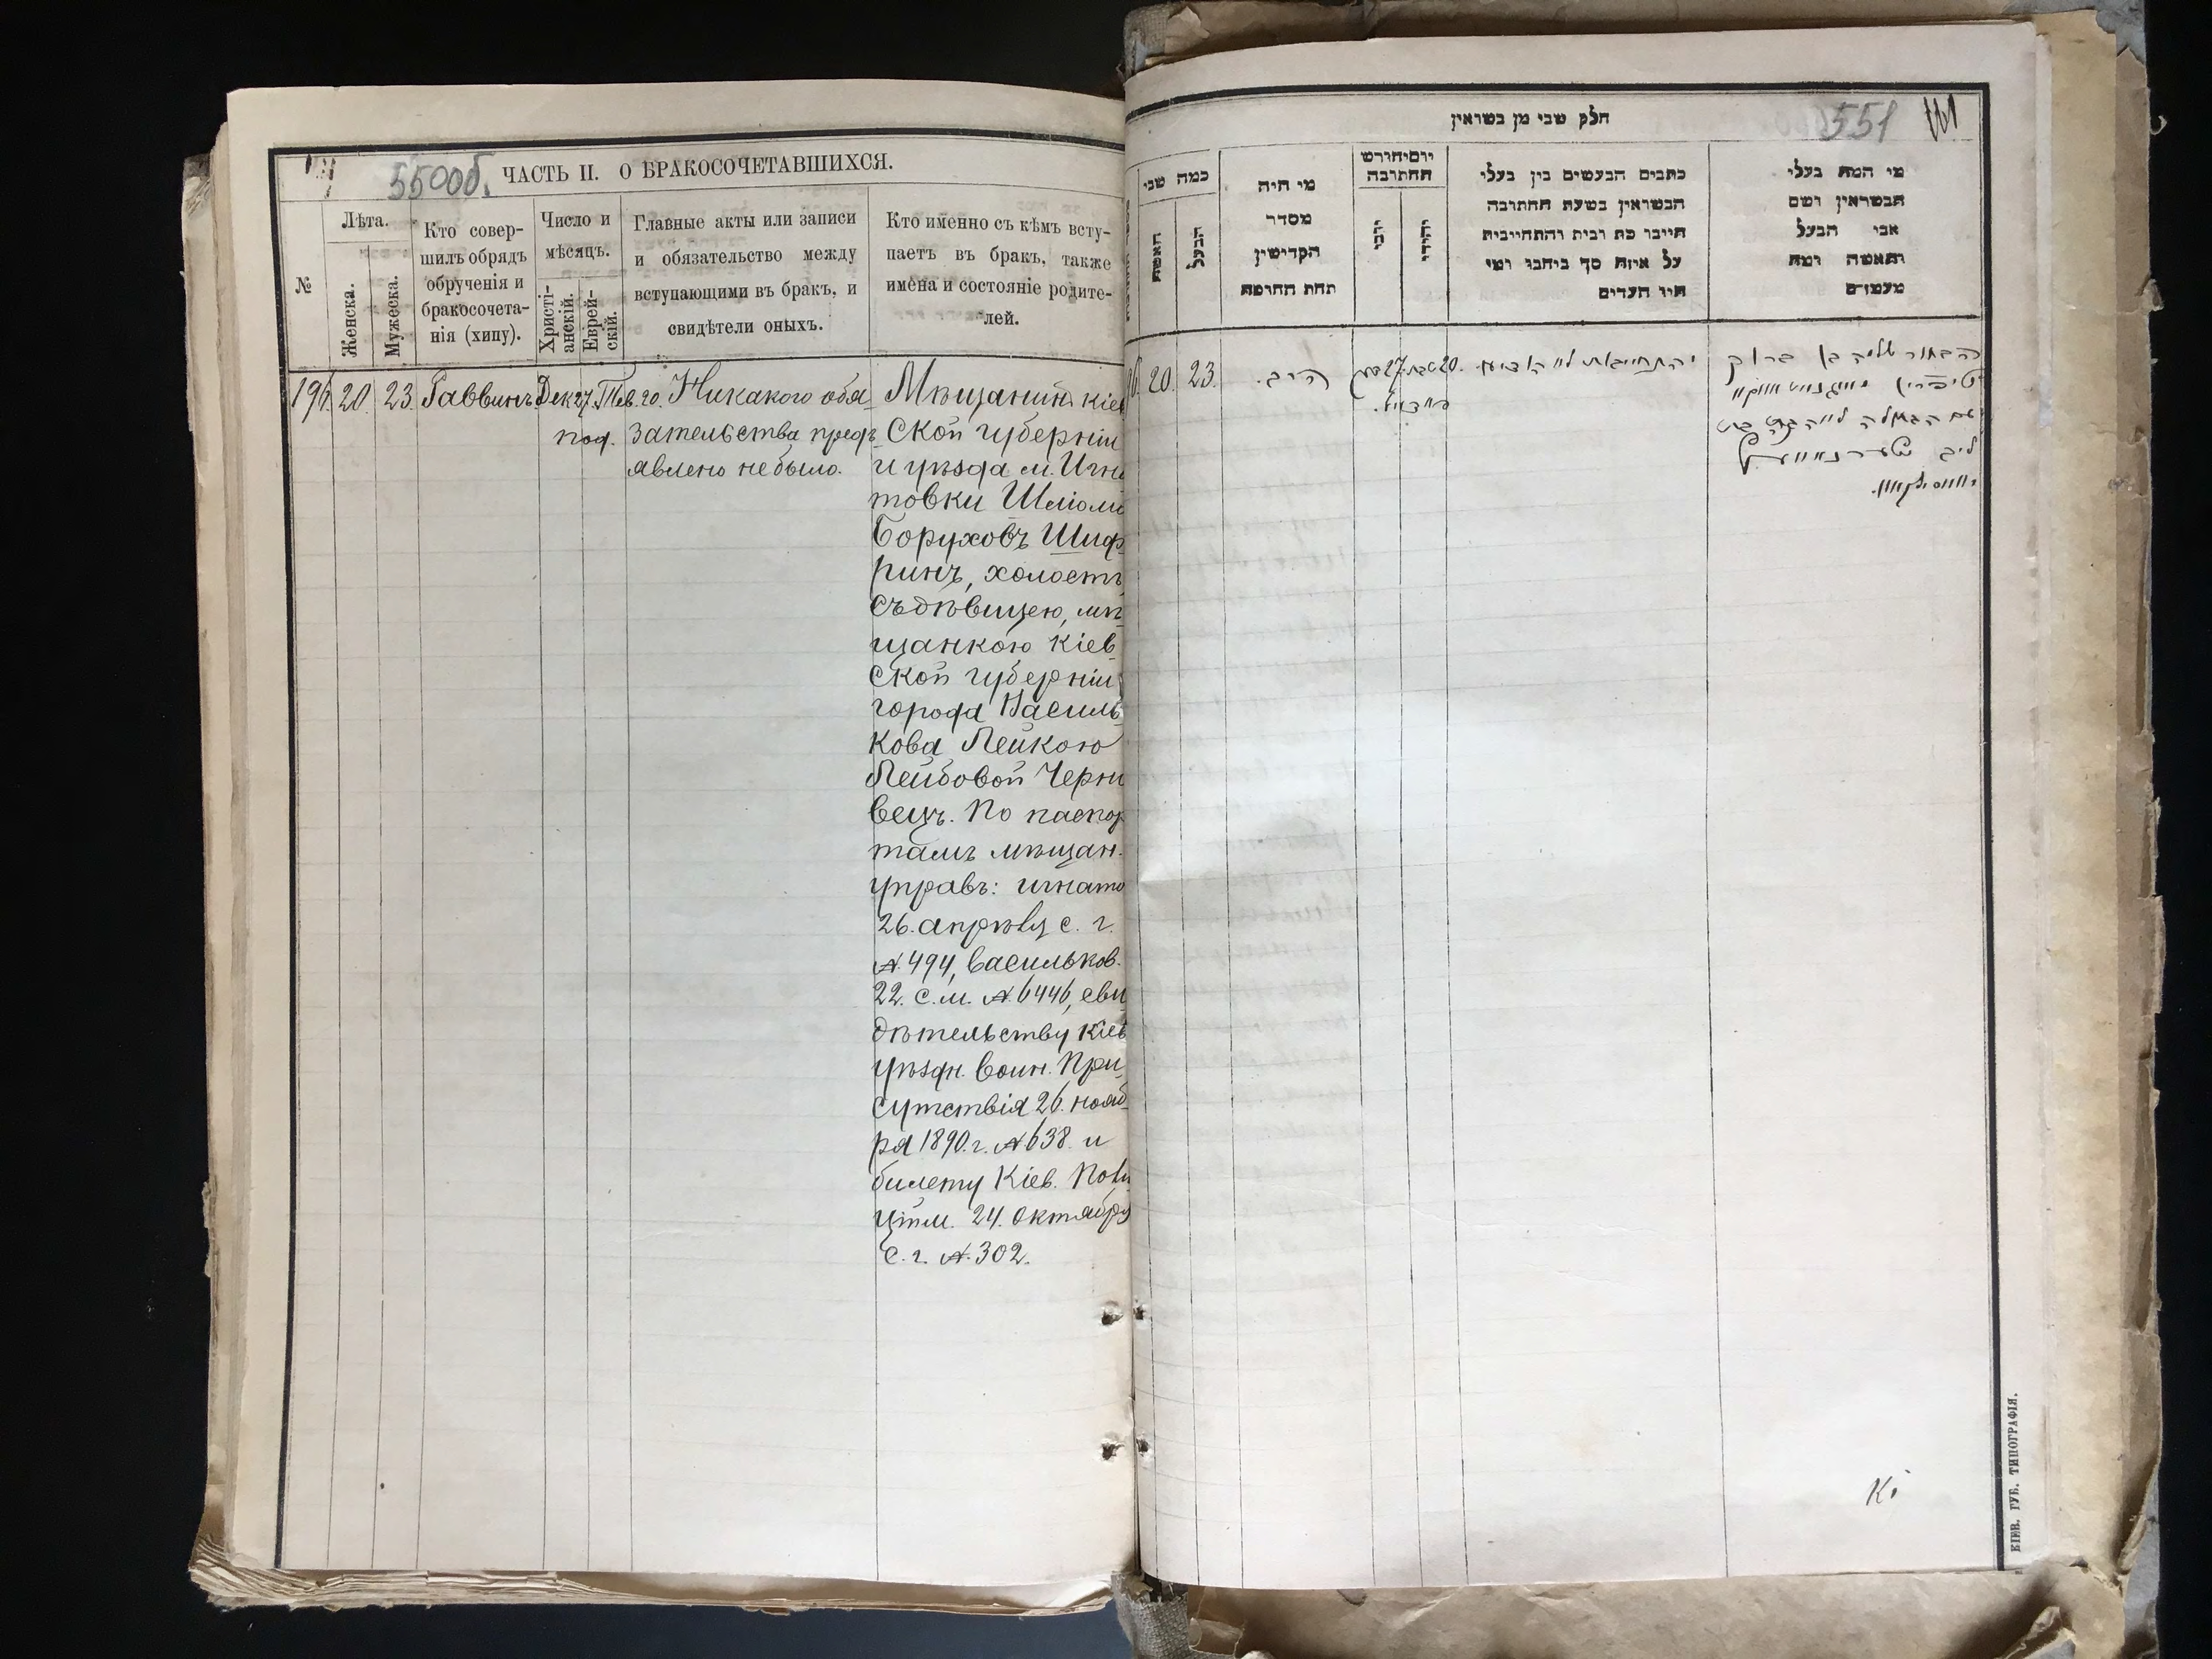 550об. ЧАСТЬ II. О БРАКОСОЧЕТАВШИХСЯ.
№
Лѣта.
Женска.
Мужеска.
Кто совер-
шилъ обрядъ
обрученія и
бракосочета-
нія (хипу).
Число и
мѣсяцъ.
Христі-
анскій.
Еврей-
скій.
Главные акты или записи
и обязательство между
вступающими въ бракъ, и
свидѣтели оныхъ.
Кто именно съ кѣмъ всту-
паетъ въ бракъ, также
имена и состояніе родите-
лей.
196. 20. 23. Раввинъ Дек. 27. Тев. 20. Никакого обя-
под. зательства предъ-
явлено не было.
Мѣщанинъ Кіев
ской губерніи
и уѣзда м. Игна
товки Шліома
Боруховъ Шиф
ринъ, холостъ,
съ дѣвицею, мѣ
щанкою Кіев
ской губерніи
города Василь
кова Лейкою
Лейбовой Черни
вецъ. По паспор
тамъ мѣщан.
управъ: игнато
26. апрѣля с. г.
№ 494, Васильков.
22. с. м. № 6446, сви
дѣтельству Кіев
уѣздн. Воин. При
сутствія 26. нояб
ря 1890. г. № 638. и
билету Кіев. Поли
цейм. 24. октября
с. г. № 302.
551
חלק שני מן נשואין
כמה שני
האשה
הבעל
מי היה
מסדר
הקדושין
תחת החופה
יום וחודש
החתונה
נוצרי
יהודי
כתבים הנעשים בין בעלי
הנשואין בשעת החתונה
היינו כתובה והתחייבות
על איזה סך ביניהם ומי
היו העדים
מי המה בעלי
הנשואין ושם
אבי הבעל
והאשה ומה
מעמדם
20. 23. הרב. 27 20.
הבחור שלמה בן ברוך
שיפרין
КІЕВ. ГУБ. ТИПОГРАФІЯ.